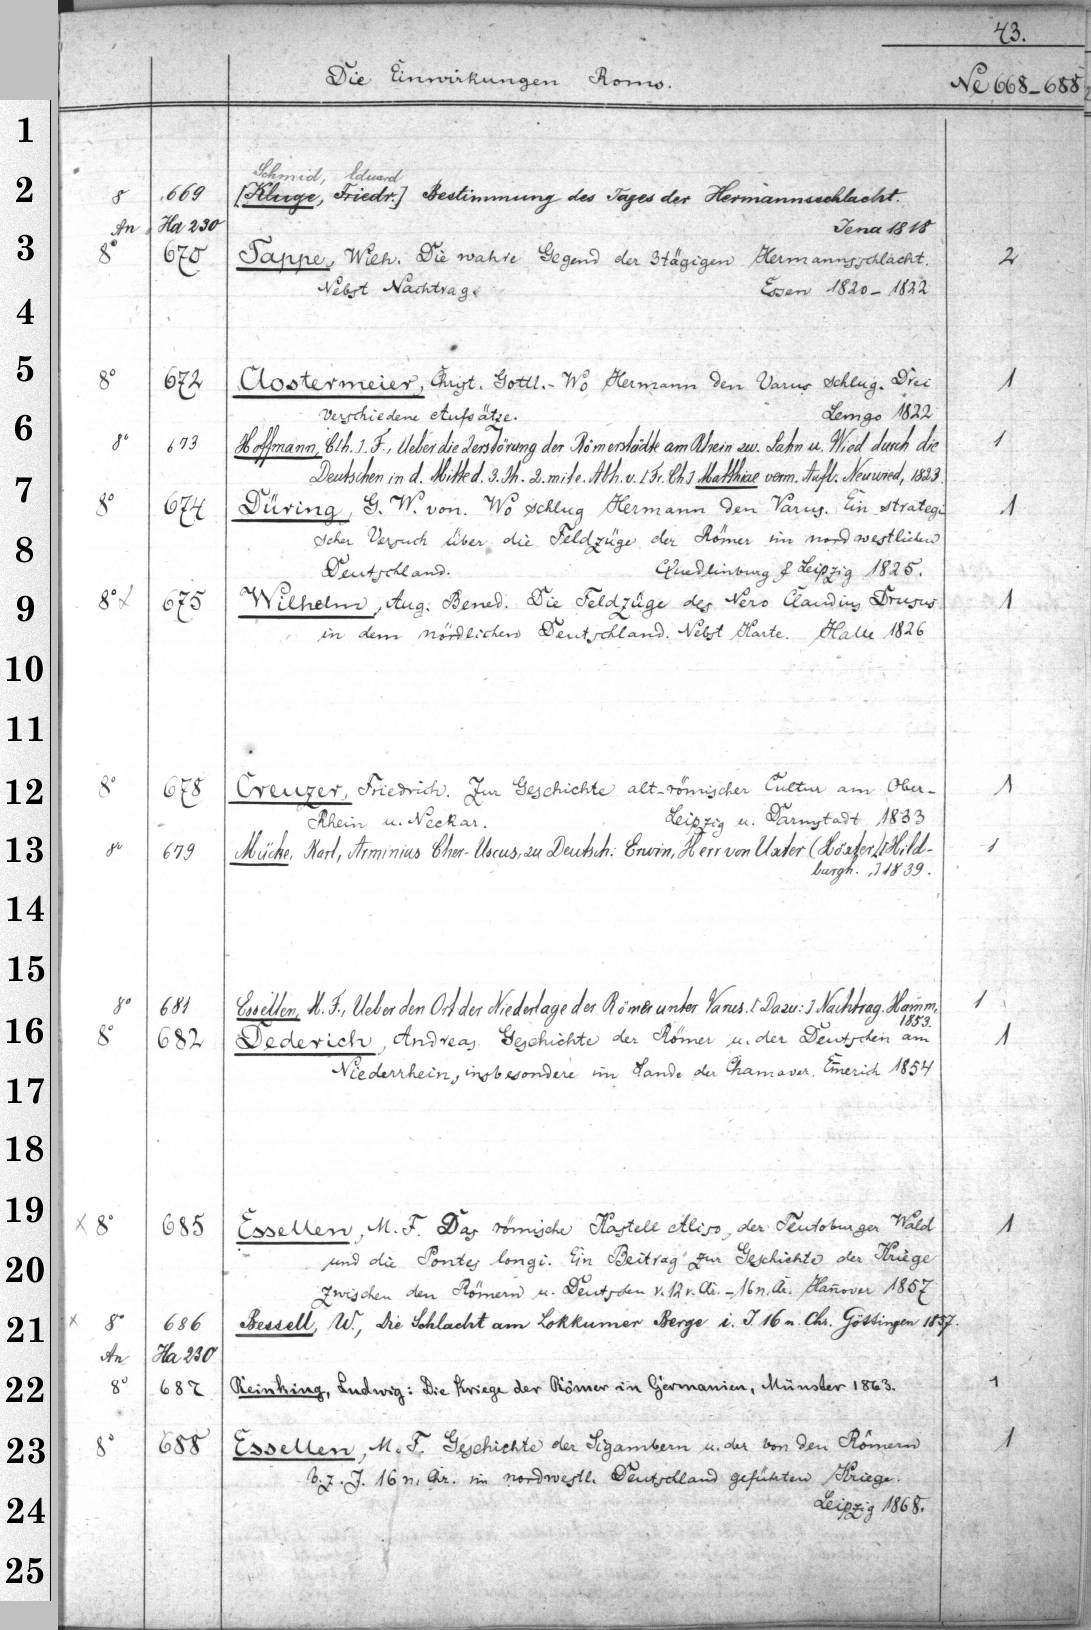 43.
Die Einwirkungen Roms. № 668-688
1
Schmid, Eduard
2 8 669 [Kluge, Friedr.] Bestimmung des Tages der Hermannsschlacht.
An Ha 230 Jena 1818
3 8° 670 Tappe, Wilh. Die wahre Gegend der 3tägigen Hermannsschlacht. 2
Nebst Nachtrag. Essen 1820-1822
4
5 8° 672 Clostermeier, Christ. Gottl. - Wo Hermann den Varus schlug. Drei 1
verschiedene Aufsätze. Lemgo 1822
6 8° 673 Hoffmann, C[h. ]. F., Ueber die Zerstörung der Römerstädte am Rhein zw. Lahn u. Wied durch die 1
7 Deutschen in d. Mitte d. 3. Jh. 2. mit e. Abh. v. [Fr. Ch.] Matthiae verm. Aufl. Neuwied, 1823.
8° 674 Düring, G. W. von. Wo schlug Hermann den Varus. Ein strategi 1
8 scher Versuch über die Feldzüge der Römer im nordwestlichen
Deutschland. Quedlinburg & Leipzig 1825.
9 8° x 675 Wilhelm, Aug. Bened. Die Feldzüge des Nero Claudius Drusus 1
in dem nördlichen Deutschland. Nebst Karte. Halle 1826
10
11
12 8° 678 Creuzer, Friedrich. Zur Geschichte alt-römischer Cultur am Ober- 1
Rhein u. Neckar. Leipzig u. Darmstadt 1833
13 8° 679 Mücke, Karl, Arminius Cher-Uscus, zu Deutsch: Erwin, Herr von Uxter (Höxter.) [Hild- 1
burgh.] 1839.
14
15
8° 681 Essellen, M. F., Ueber den Ort der Niederlage der Römer unter Varus. [Dazu:] Nachtrag. Hamm, 1
1853.
16 8° 682 Dederich, Andreas Geschichte der Römer u. der Deutschen am 1
Niederrhein, insbesondere im Lande der Chamaver. Emerich 1854
17
18
19 x 8° 685 Essellen, M. F. Das römische Kastell Aliso, der Teutoburger Wald 1
20 und die Pontes longi. Ein Beitrag zur Geschichte der Kriege
zwischen den Römern u. Deutschen v. 12 v. Ch. - 16 n. Ch. Hannover 1857
21 x 8° 686 Bessell, W., Die Schlacht am Lokkumer Berge i. J. 16 n. Chr. Göttingen 1857.
An Ha 230
22 8° 687 Reinking, Ludwig: Die Kriege der Römer in Germanien, Münster 1863. 1
23 8° 688 Essellen, M. F. Geschichte der Sigambern u. der von den Römern 1
b. z. J. 16 n. Chr. im nordwestl. Deutschland geführten Kriege.
24 Leipzig 1868.
25